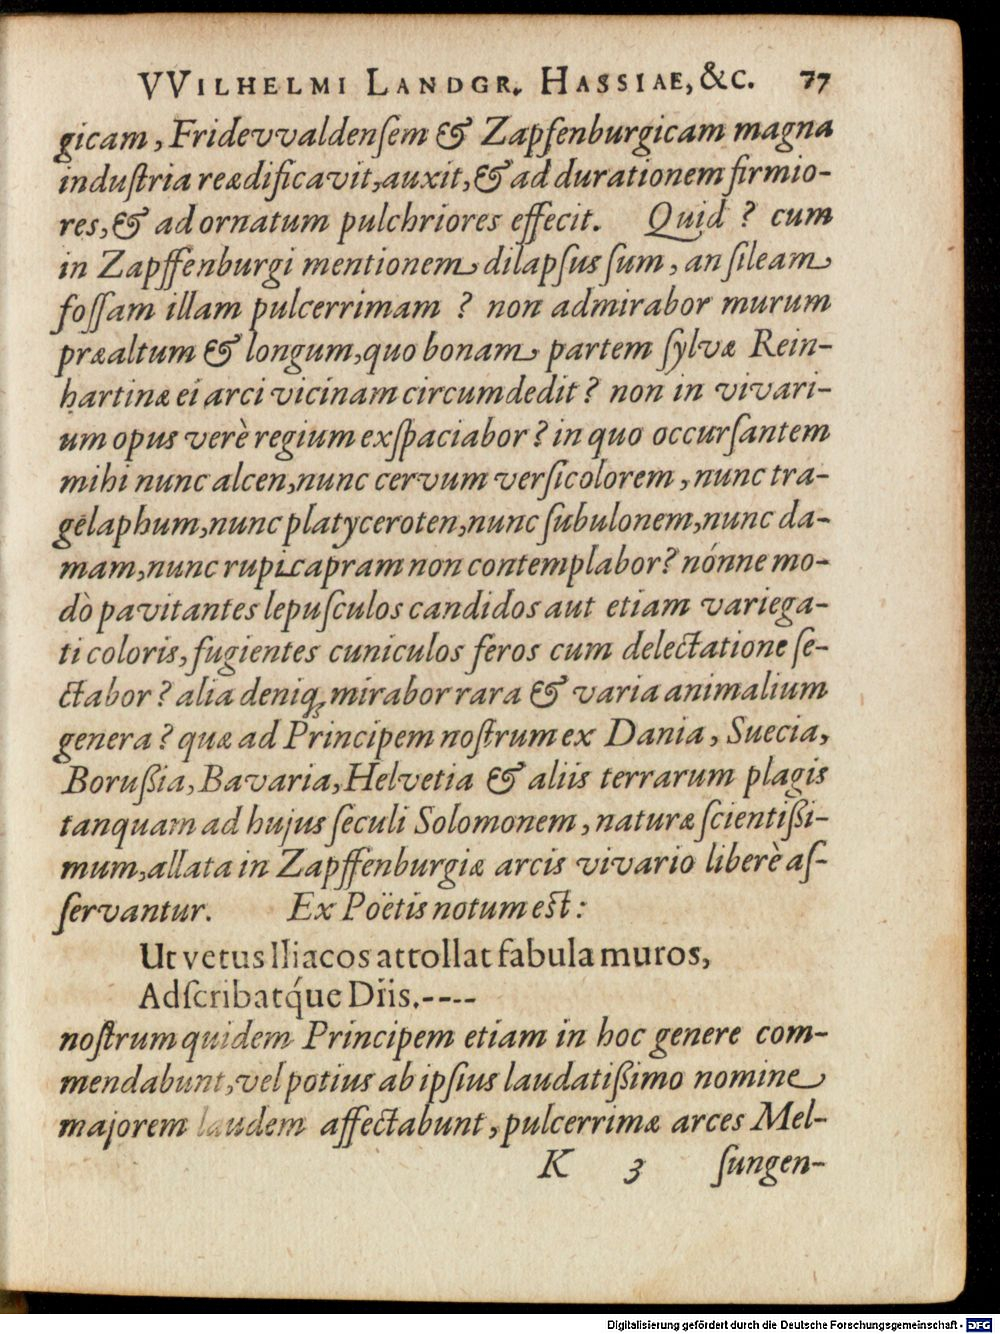 VVILHELMI LANDGR. HASSIAE, &C. 77
gicam, Fridevvaldenſem & Zapfenburgicam magna
induſtria reædificavit, auxit, & ad durationem firmio-
res, & ad ornatum pulchriores effecit. Quid ? cum
in Zapffenburgi mentionem dilapſus ſum, an ſileam
foſſam illam pulcerrimam ? non admirabor murum
præaltum & longum, quo bonam partem ſylvæ Rein-
hartinæ ei arci vicinam circumdedit ? non in vivari-
um opus verè regium exſpaciabor ? in quo occurſantem
mihi nunc alcen, nunc cervum verſicolorem, nunc tra-
gelaphum, nunc platyceroten, nunc ſubulonem, nunc da-
mam, nunc rupicapram non contemplabor ? nónne mo-
dò pavitantes lepuſculos candidos aut etiam variega-
ti coloris, fugientes cuniculos feros cum delectatione ſe-
ctabor ? alia deniq; mirabor rara & varia animalium
genera ? quæ ad Principem noſtrum ex Dania, Suecia,
Borußia, Bavaria, Helvetia & aliis terrarum plagis
tanquam ad hujus ſeculi Solomonem, naturæ ſcientißi-
mum, allata in Zapffenburgiæ arcis vivario liberè aſ-
ſervantur. Ex Poëtis notum est:
Ut vetus Iliacos attollat fabula muros,
Adſcribatq́ue Diis.----
noſtrum quidem Principem etiam in hoc genere com-
mendabunt, vel potius ab ipſius laudatißimo nomine
majorem laudem affectabunt, pulcerrimæ arces Mel-
K 3 ſungen-
Digitalisierung gefördert durch die Deutsche Forschungsgemeinschaft - DFG